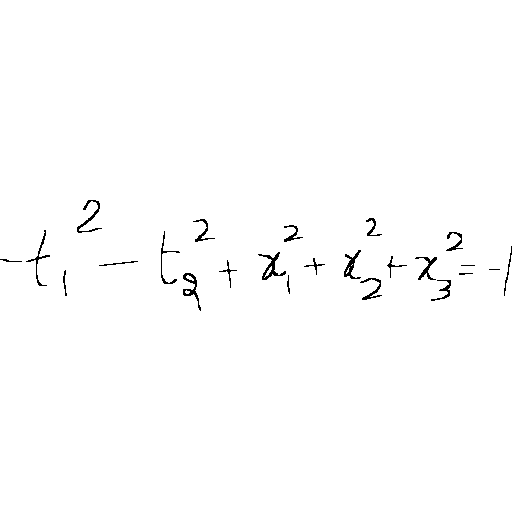 -t₁² - t₂² + x₁² + x₂² + x₃² = -1